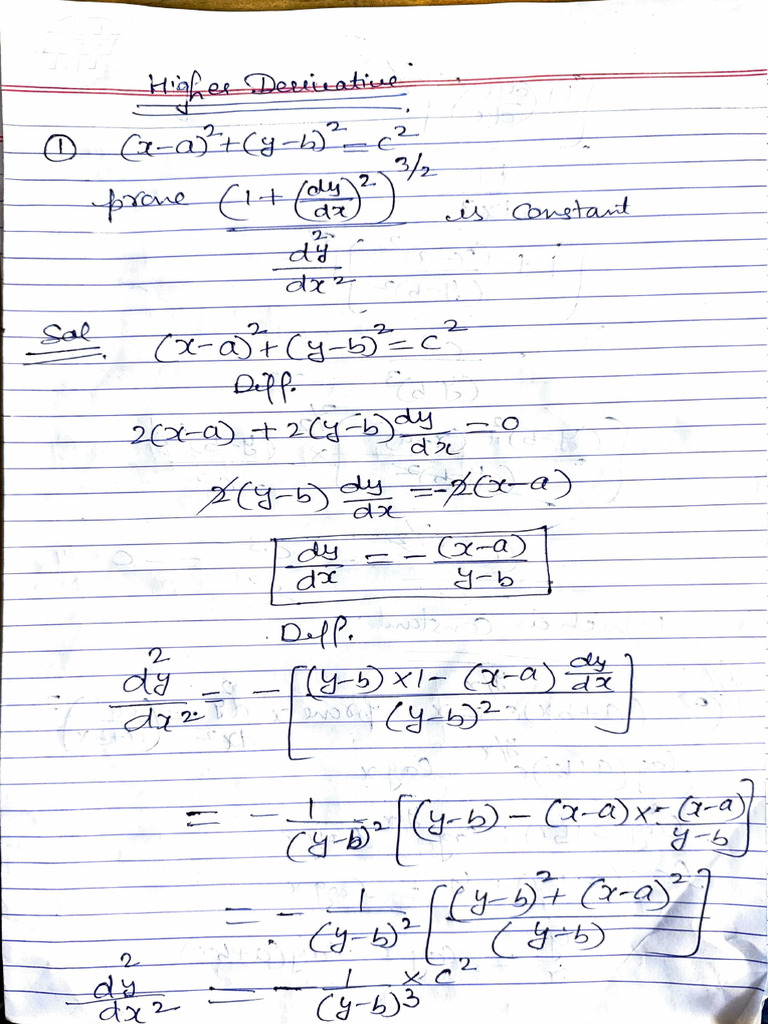 Higher Derivative
① (x-a)²+(y-b)²=c²
prove (1+(dy/dx)²)^3/2 / d²y/dx² is constant
Sol. (x-a)²+(y-b)²=c²
Diff.
2(x-a)+2(y-b)dy/dx=0
2(y-b) dy/dx=-2(x-a)
dy/dx = -(x-a)/y-b
Diff.
d²y/dx² = -[(y-b)×1-(x-a)dy/dx/(y-b)²]
= -1/(y-b)²[(y-b)-(x-a)×-(x-a)/y-b]
= -1/(y-b)²[(y-b)²+(x-a)²/(y-b)]
d²y/dx² = -1/(y-b)³×c²